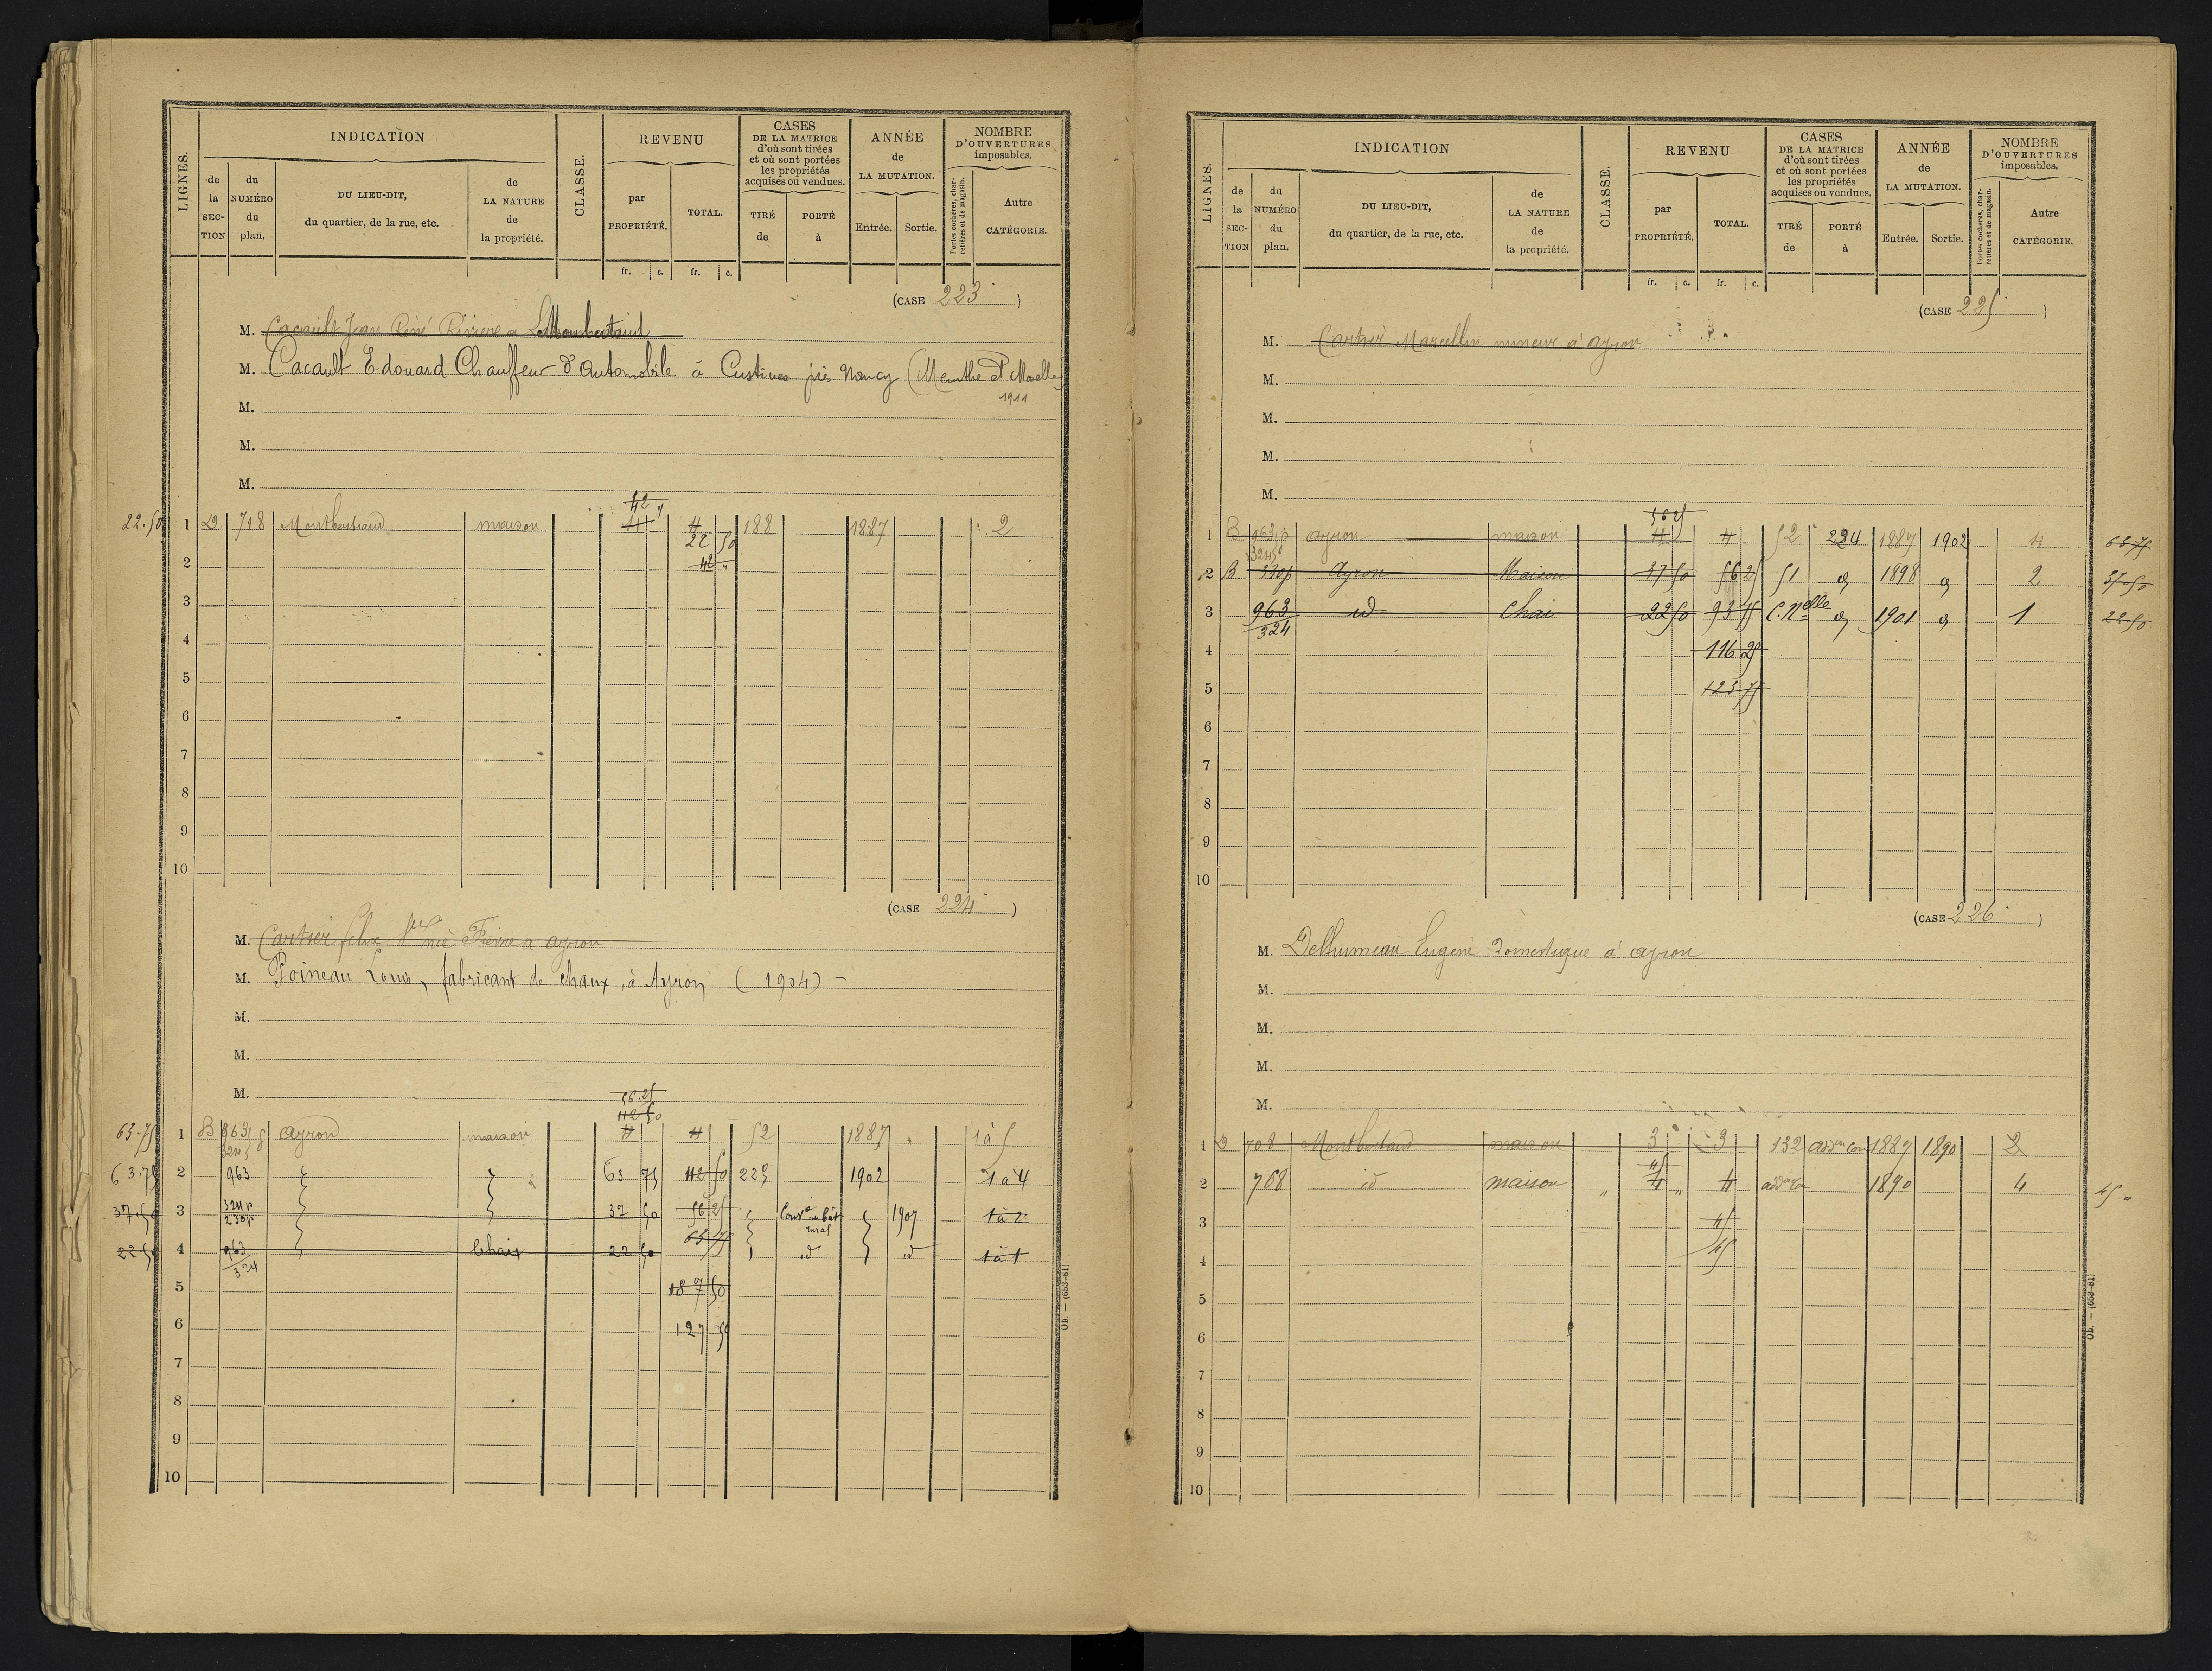 LIGNES.
INDICATION
CLASSE.
REVENU
CASES
DE LA MATRICE
d'où sont tirées
et où sont portées
les propriétés
acquises ou vendues.
ANNÉE
de
LA MUTATION.
NOMBRE
D'OUVERTURES
imposables.
de la SECTION
du NUMÉRO du plan.
DU LIEU-DIT,
du quartier, de la rue, etc.
de LA NATURE de la propriété.
par PROPRIÉTÉ.
TOTAL.
TIRÉ de
PORTÉ à
Entrée.
Sortie.
Portes cochères, charretières et de magasin.
Autre CATÉGORIE.
fr. c. fr. c.
(CASE 223)
M. Cacault Jean René Rivière a
M. Cacault Edouard Chauffeur d'Automobile à Custines près Nancy (Meurthe et Moselle
1911
M.
M.
M.
42 "
22.50 1 D 718 Montbertrand maison 4 4 188 1887 2
22 50
2 42 "
3
4
5
6
7
8
9
10
(CASE 224)
M. Cartier felix née Fievre a ayron
M. Poineau Louis, fabricant de chaux, à Ayron (1904) -
M.
M.
M.
56.25
112 50
63-75 1 B 963 ayron maison 4 4 52 1887 1 à 5
324
63.75 2 963 63 75 112 50 225 1902 1 à 4
37.50 3 324p 230p 37 50 56 25 Conv en bât rural 1907 1 à 2
65 75
22 50 4 963 324 Chaix 22 50 id id 1 à 1
5 187 50
6 127 50
7
8
9
10
Ob. — (653-81)
LIGNES.
INDICATION
CLASSE.
REVENU
CASES
DE LA MATRICE
d'où sont tirées
et où sont portées
les propriétés
acquises ou vendues.
ANNÉE
de
LA MUTATION.
NOMBRE
D'OUVERTURES
imposables.
de la SECTION
du NUMÉRO du plan.
DU LIEU-DIT,
du quartier, de la rue, etc.
de LA NATURE de la propriété.
par PROPRIÉTÉ.
TOTAL.
TIRÉ de
PORTÉ à
Entrée.
Sortie.
Portes cochères, charretières et de magasin.
Autre CATÉGORIE.
fr. c. fr. c.
(CASE 225)
M. Cartier Marcellin mineur a ayron
M.
M.
M.
M.
56 25
1 B 963p ayron maison 4 4 52 224 1887 1902 4 63-75
324
2 B 330p Ayron Maison 37 50 56 25 51 1898 2 37-50
3 963 324 id Chai 22 50 93 75 C. Nelle 1901 1 22-50
4 116 25
5 123 75
6
7
8
9
10
(CASE 226)
M. Delhumeau Eugène Domestique a ayron
M.
M.
M.
M.
1 D 708 Montbertard maison 3 3 132 1887 1890 2
45
2 768 id maison " 4 " 4 1890 4 45 "
3 45
4 45
5
6
7
8
9
10
Ob. — (653-81)